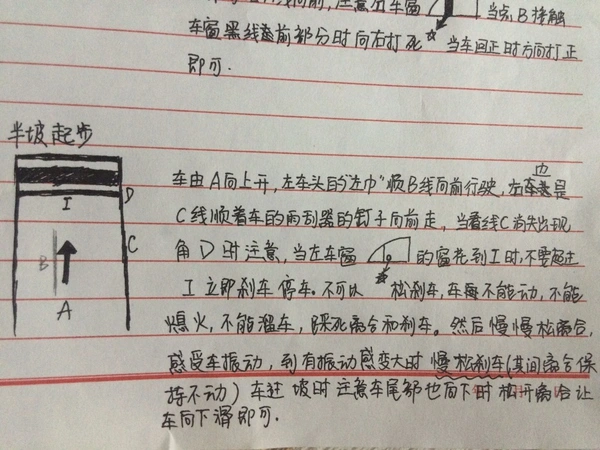 注意左车窗 当点B接触
车窗黑线盖前部分时向右打死☆当车回正时方向打正
即可.
半坡起步
车由A向上开，左车头的"边巾"顺B线向前行驶，右边是
C线顺着车的雨刮器的钉子向前走，当看线C消失出现
角D时注意，当左车窗 的窗花到I时，不要超过
I立即刹车停车。不可以 松刹车，车身不能动，不能
熄火，不能溜车，踩死离合和刹车。然后慢慢松离合，
感受车振动，到有振动感变大时慢松刹车(其间离合保
持不动)车过坡时注意车尾部也向下时松开离合让
车向下滑即可.
I
D
C
B
A